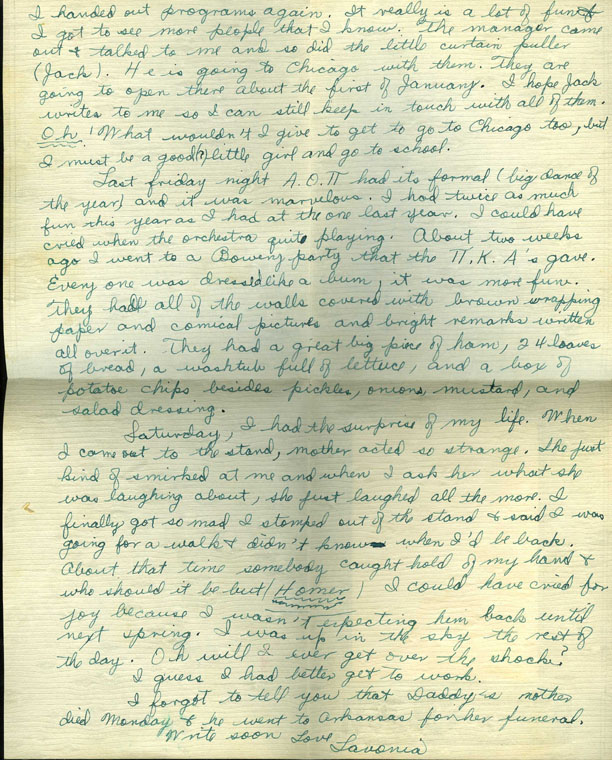 I handed out programs again. It really is a lot of fun &
I got to see more people that I know. The manager came
out & talked to me and so did the little curtain puller
(Jack). He is going to Chicago with them. They are
going to open there about the first of January. I hope Jack
writes to me so I can still keep in touch with all of them.
Oh! What wouldn't I give to get to go to Chicago too, but
I must be a good(?) little girl and go to school.
Last friday night A.O.Π had its formal (big dance of
the year) and it was marvelous. I had twice as much
fun this year as I had at the one last year. I could have
cried when the orchestra quite playing. About two weeks
ago I went to a Bowery party that the Π.K.A's gave.
Every one was dress'd like a bum, it was more fun.
They had all of the walls covered with brown wrapping
paper and comical pictures and bright remarks written
all over it. They had a great big piece of ham, 24 loaves
of bread, a washtub full of lettuce, and a box of
potatoe chips besides pickles, onions, mustard, and
salad dressing.
Saturday, I had the surprise of my life. When
I came out to the stand, mother acted so strange. She just
kind of smirked at me and when I ask her what she
was laughing about, she just laughed all the more. I
finally got so mad I stomped out of the stand & said I was
going for a walk & didn't know when I'd be back.
About that time somebody caught hold of my hand &
who should it be but (Homer) I could have cried for
joy because I wasn't expecting him back until
next spring. I was up in the sky the rest of
the day. Oh will I ever get over the shock?
I guess I had better get to work.
I forgot to tell you that Daddy's mother
died Monday & he went to Arkansas for her funeral.
Write soon Love
Lavonia